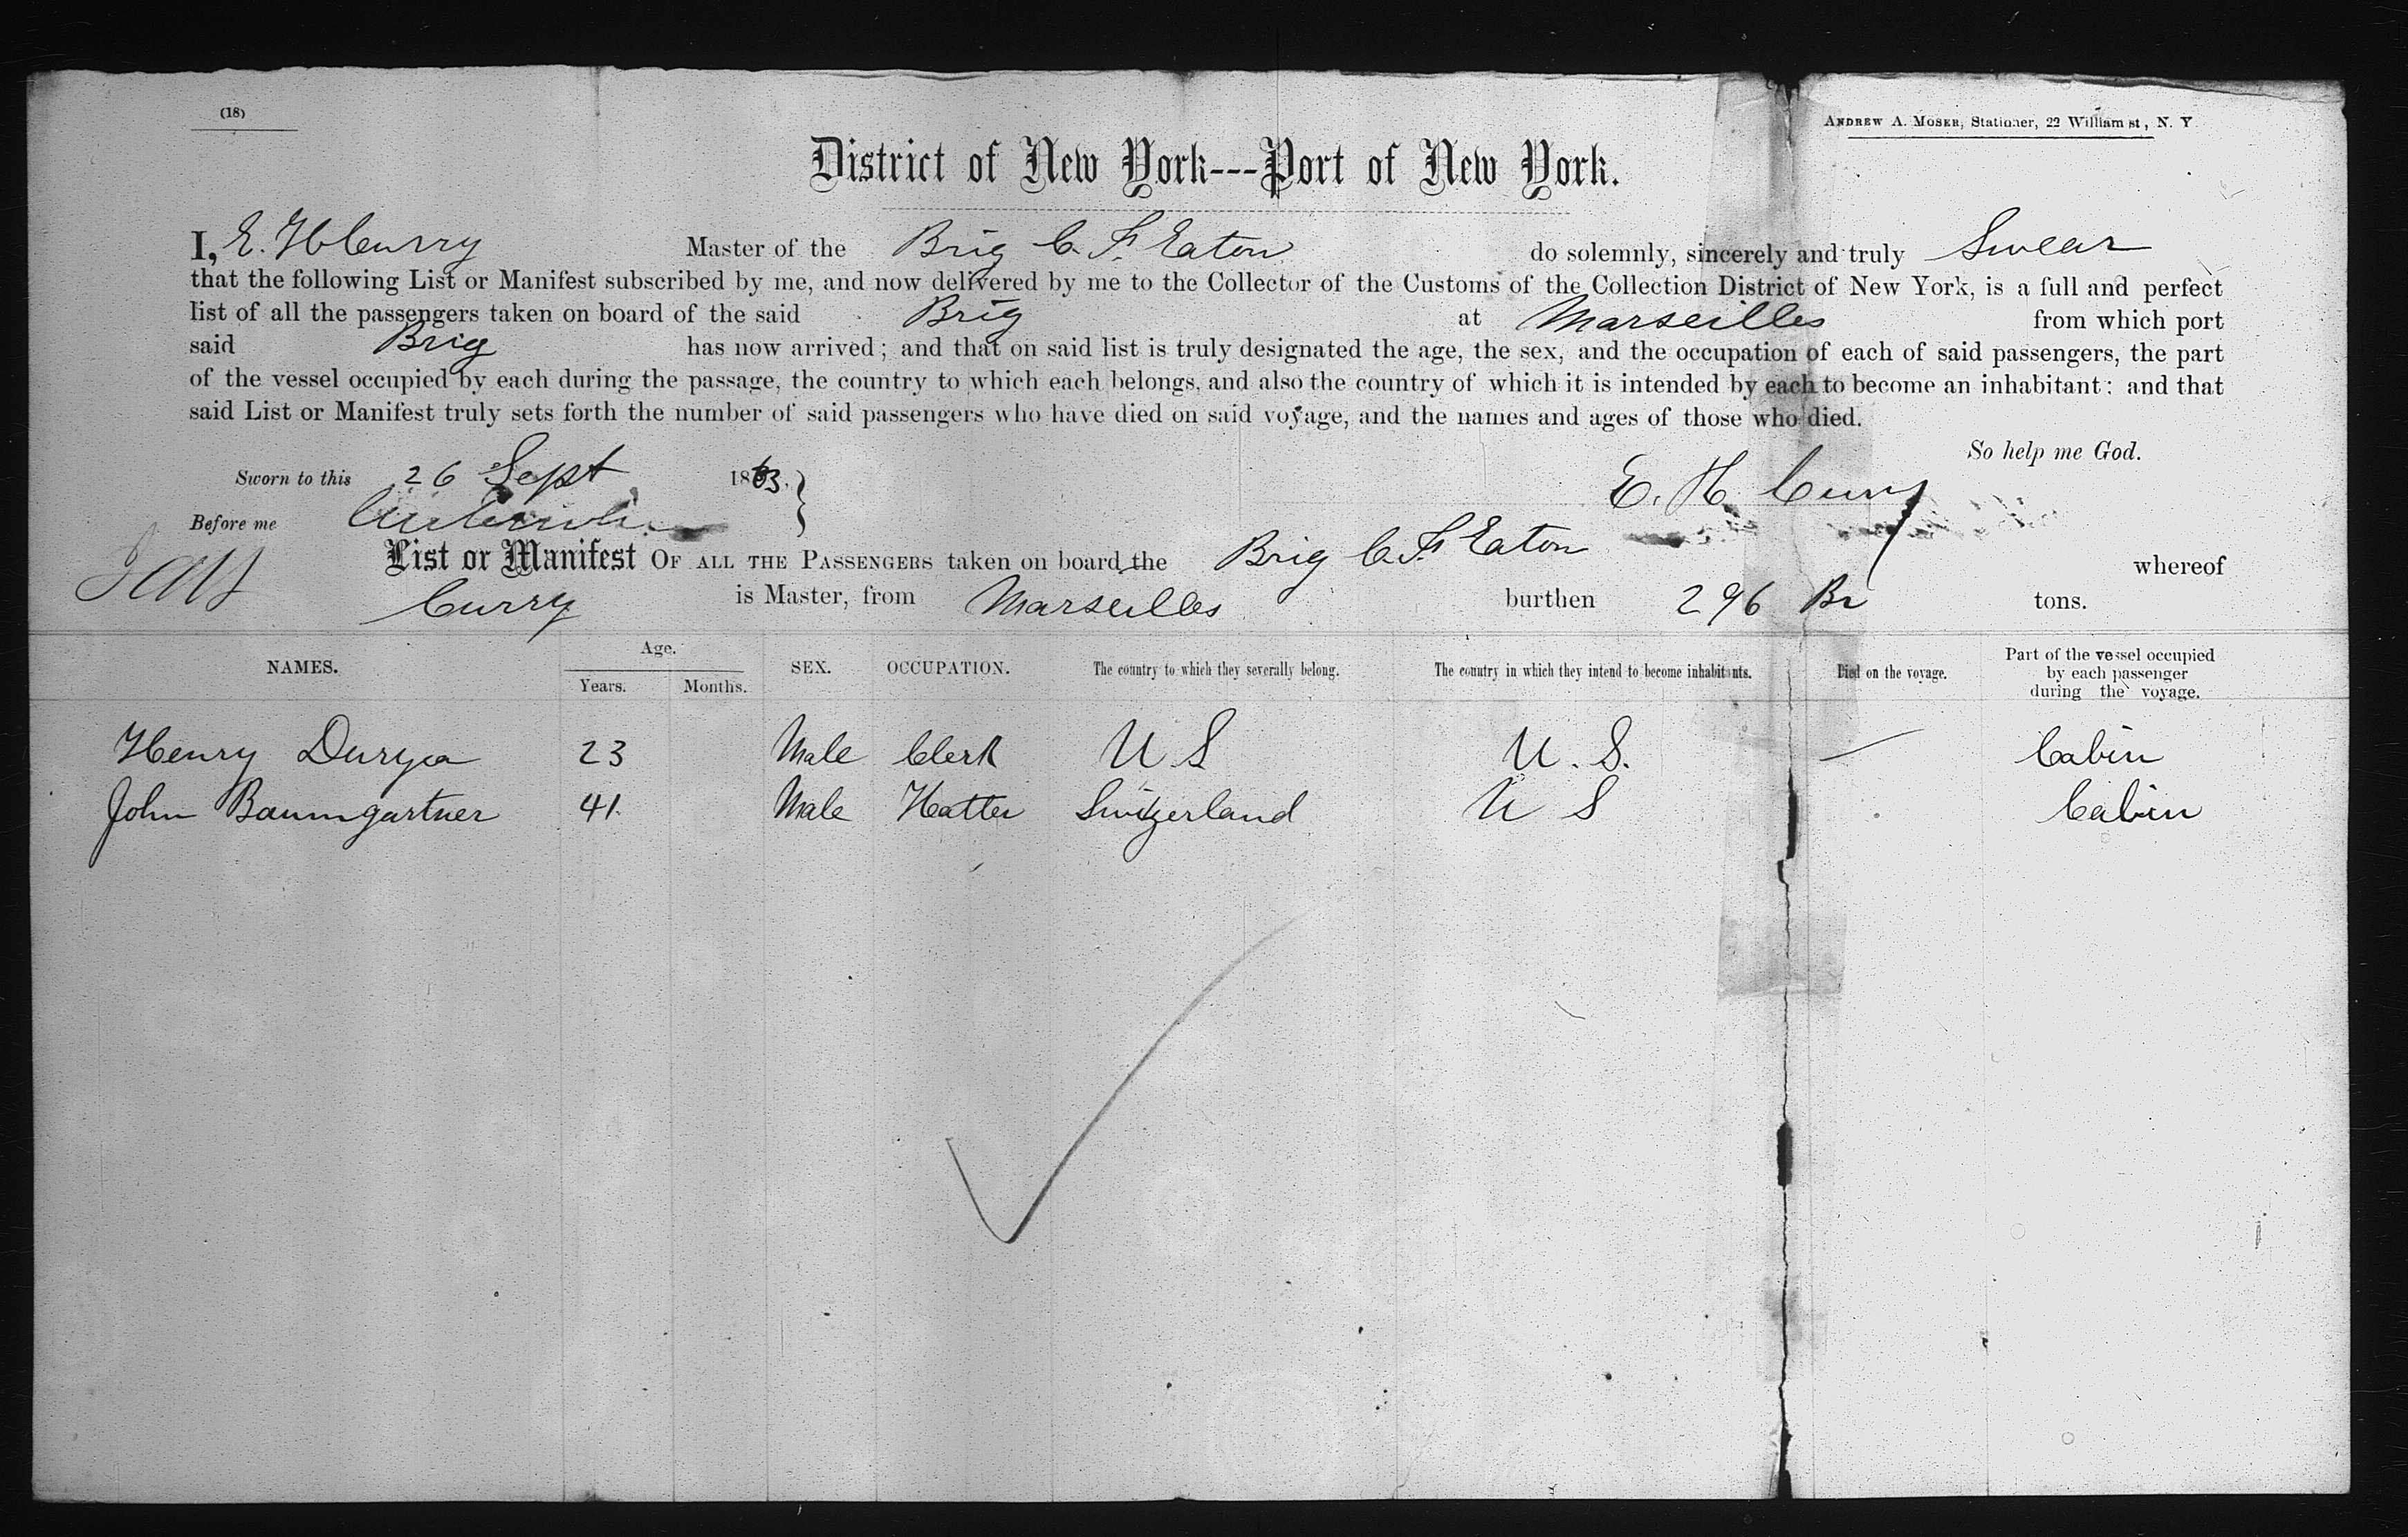 (18)
ANDREW A. MOSER, Stationer, 22 William st, N. Y
District of New York---Port of New York.
I, E. H Curry Master of the Brig C. F. Eaton do solemnly, sincerely and truly Swear
that the following List or Manifest subscribed by me, and now delivered by me to the Collector of the Customs of the Collection District of New York, is a full and perfect
list of all the passengers taken on board of the said Brig at Marseilles from which port
said Brig has now arrived; and that on said list is truly designated the age, the sex, and the occupation of each of said passengers, the part
of the vessel occupied by each during the passage, the country to which each belongs, and also the country of which it is intended by each to become an inhabitant: and that
said List or Manifest truly sets forth the number of said passengers who have died on said voyage, and the names and ages of those who died.
So help me God.
Sworn to this 26 Sept 1863.
E. H. Curry
Before me
List or Manifest OF ALL THE PASSENGERS taken on board the Brig C. F. Eaton whereof
Curry is Master, from Marseilles burthen 296 Br tons.
NAMES. Age. Years. Months. SEX. OCCUPATION. The country to which they severally belong. The country in which they intend to become inhabitants. Died on the voyage. Part of the vessel occupied by each passenger during the voyage.
Henry Duryea 23 Male Clerk U S U. S. — Cabin
John Baumgartner 41 Male Hatter Switzerland U S Cabin